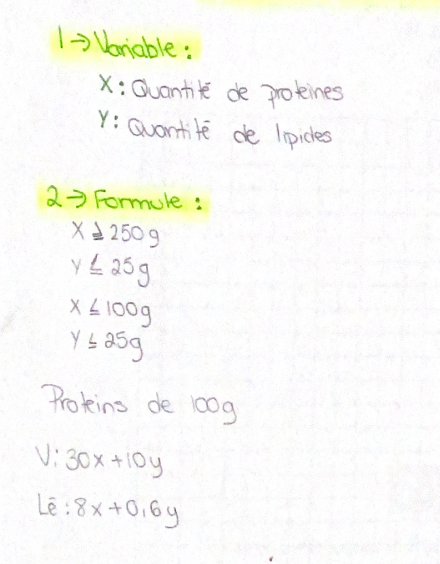 1→ Variable :
X : Quantité de proteines
Y : Quantité de lipides
2→ Formule :
X ≥ 250g
Y ≤ 25g
X ≤ 100g
Y ≤ 25g
Proteins de 100g
V : 30x + 10y
Lé : 8x + 0,6y